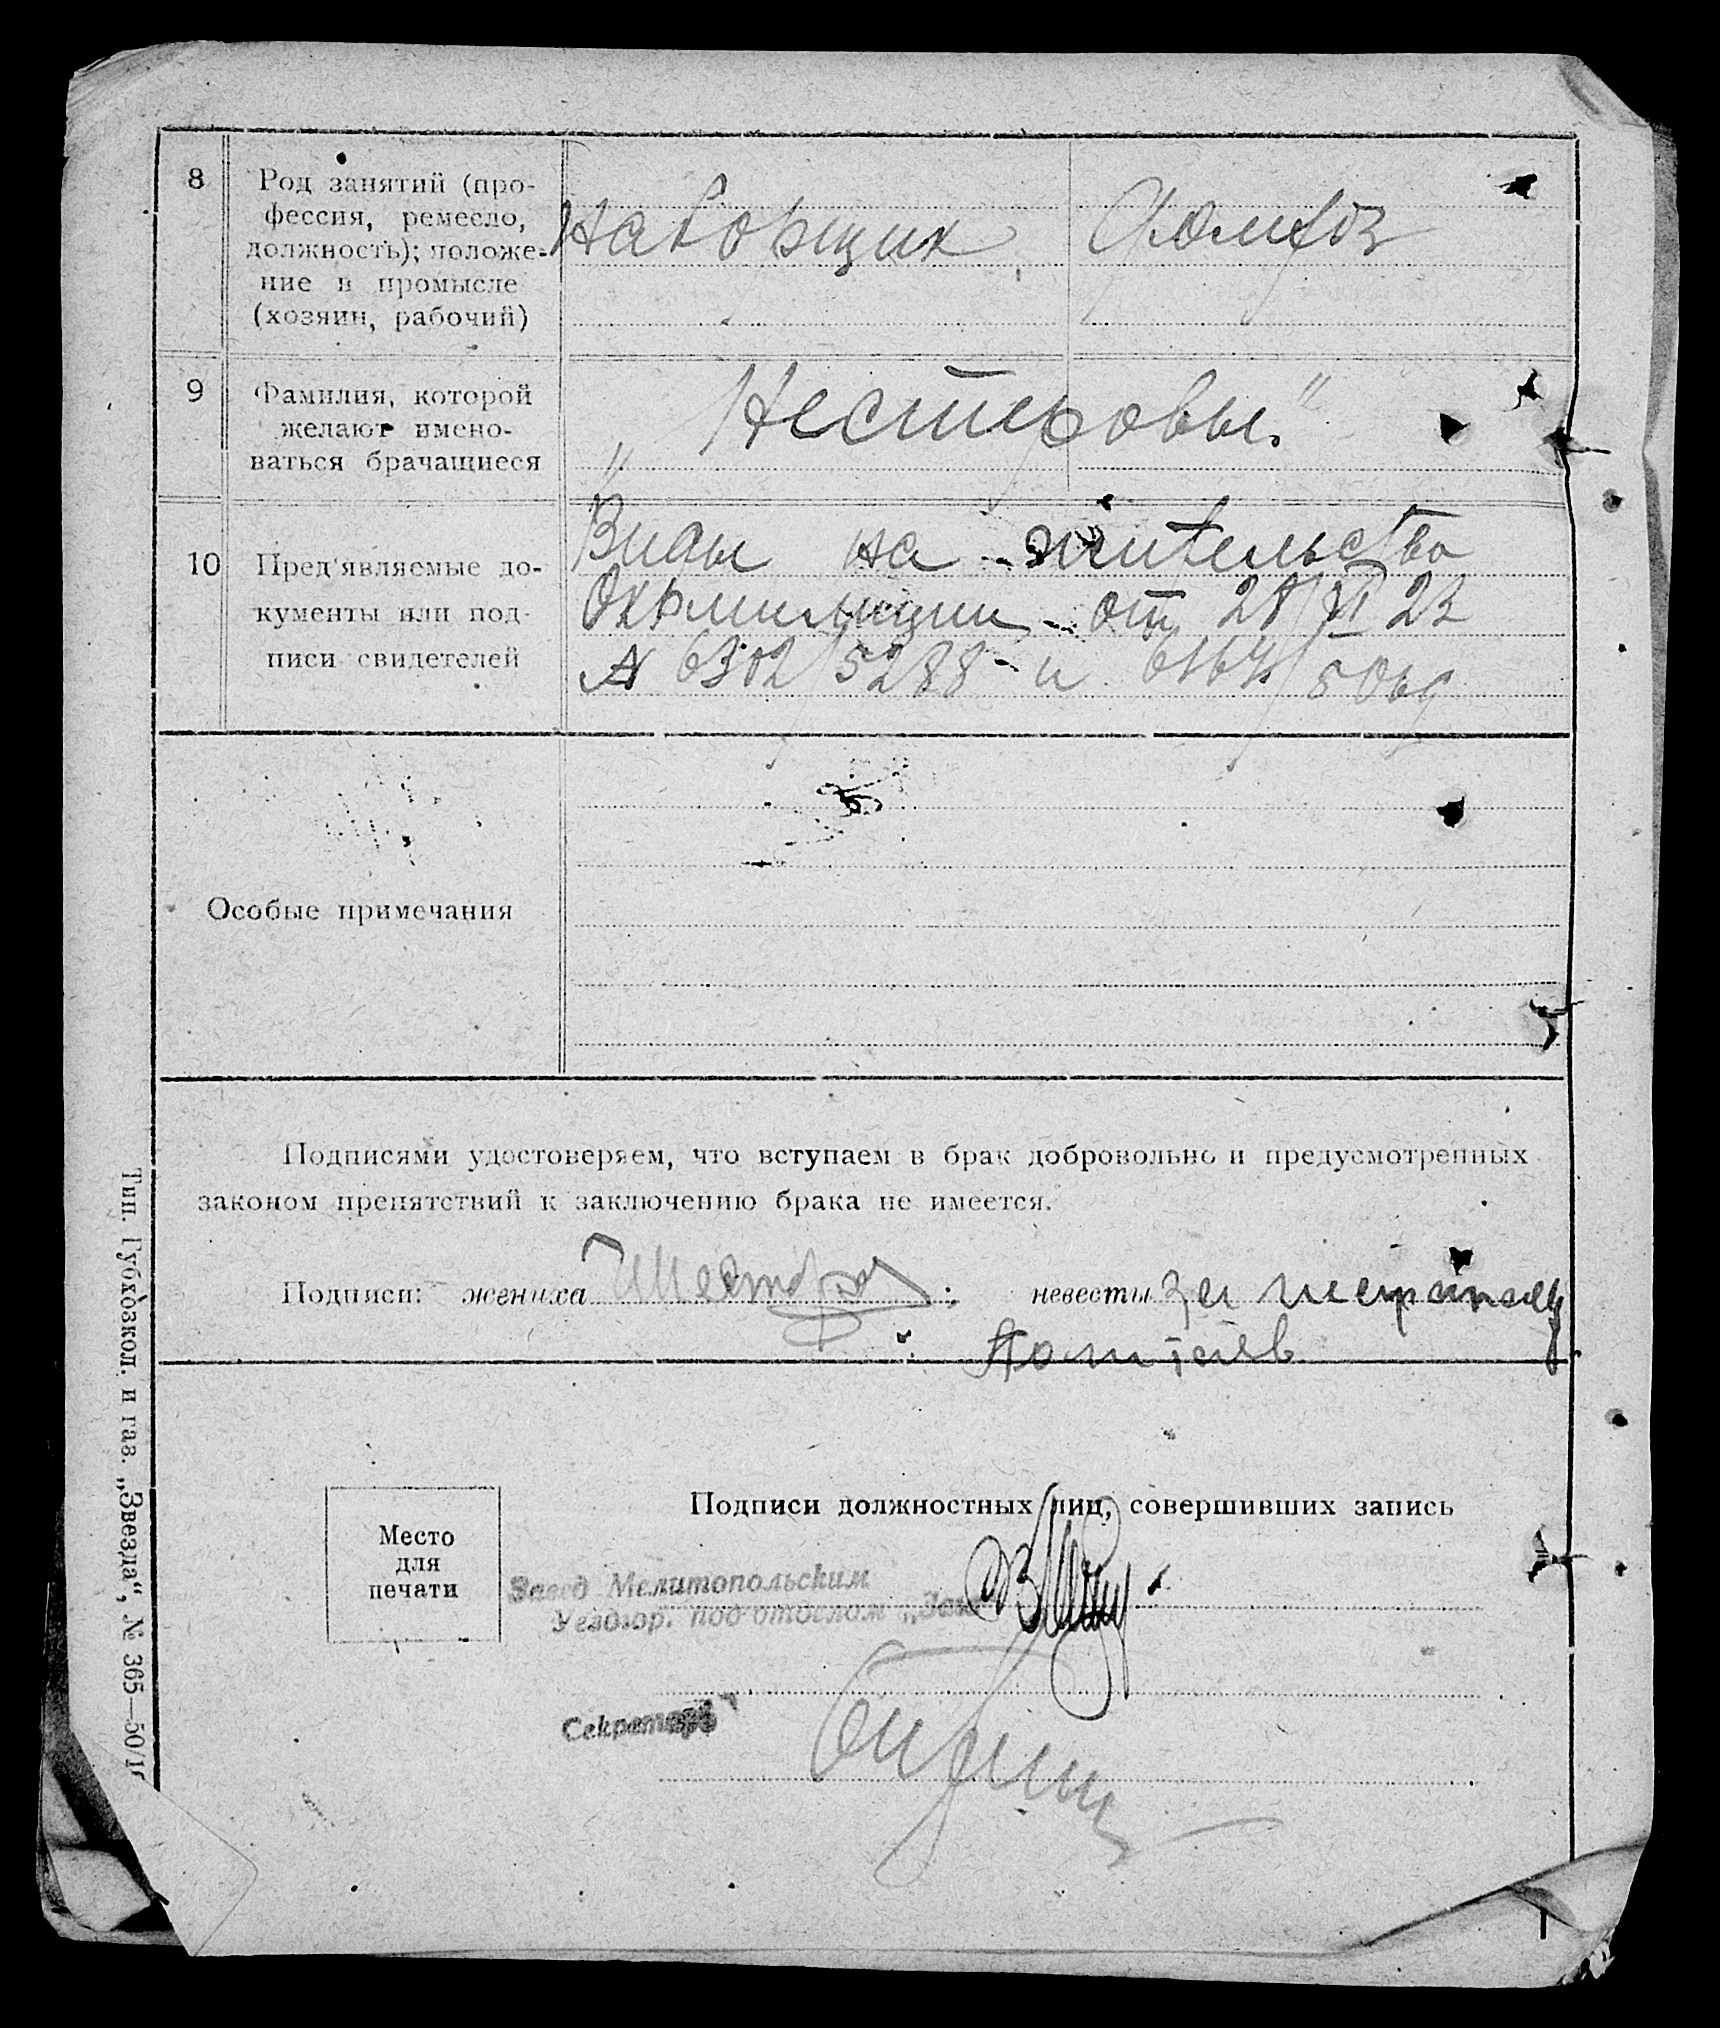 8
Род занятий (про-
фессия, ремесло,
должность); положе-
ние в промысле
(хозяин, рабочий)
наборщик
домхоз
9
Фамилия, которой
желают имено-
ваться брачащиеся
„Нестеровы."
10
Пред'являемые до-
кументы или под-
писи свидетелей
Виды на жительство
Окрмилиции от 28/VI 23
№ 6302/5288 и
Особые примечания
Подписями удостоверяем, что вступаем в брак добровольно и предусмотренных
законом препятствий к заключению брака не имеется.
Подписи: жениха
невесты за неграмотную
Подписи должностных лиц, совершивших запись
Место
для
печати
Завед Мелитопольским
под'отделом
Секретарь
Тип. Губхозкол. и газ. „Звезда“, № 365—50/1